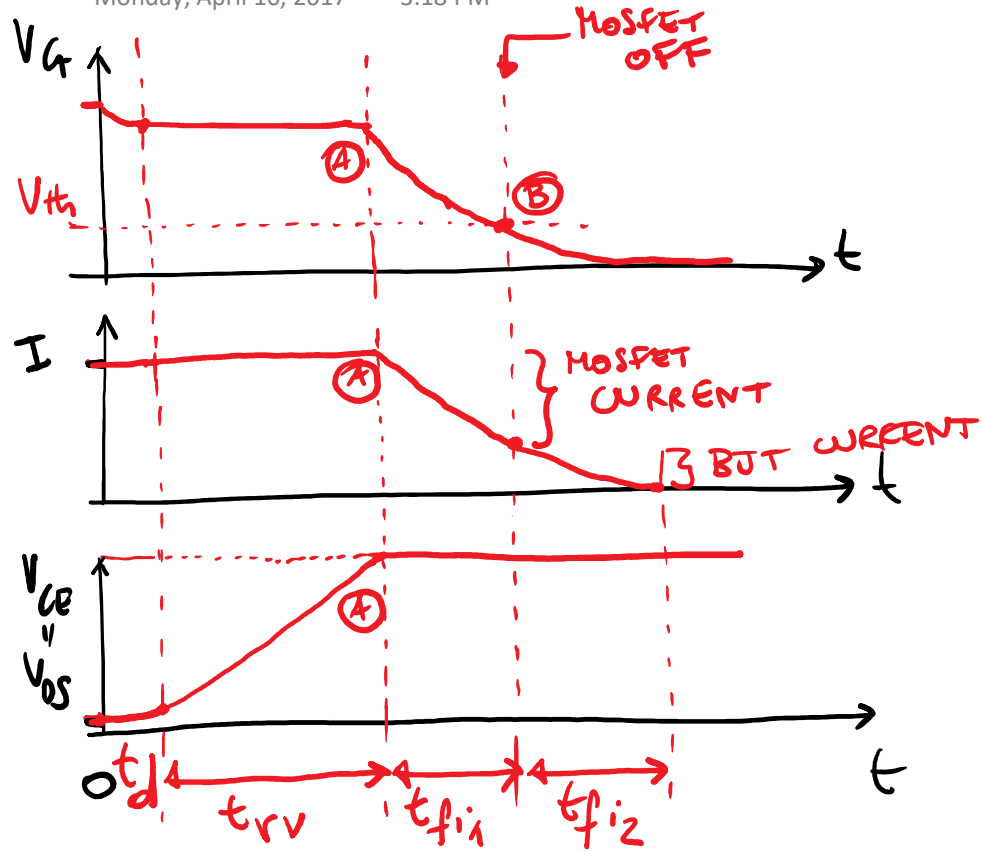 Monday, April 10, 2017 3:18 PM
MOSFET
OFF
VG
A
B
Vth
t
I
A
MOSFET
CURRENT
BJT CURRENT
t
VCE
"
VDS
A
0
td
trv
tfi1
tfi2
t